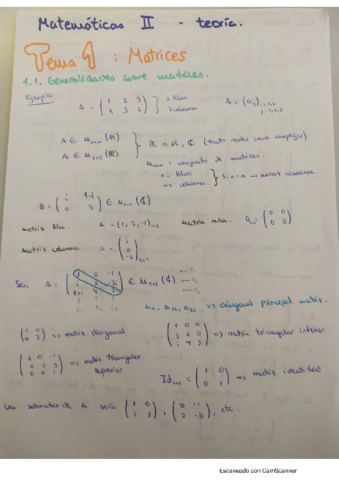 Matemáticas II - teoría.
Tema 1: Matrices
1.1. Generalidades sobre matrices.
Ejemplo:
A = ( 1 2 3 / 4 3 6 ) } 2 filas 3 columnas A = (aij)
A ∈ Mnxm (K)
A ∈ M2x3 (R) } K = R, C (tanto reales como complejos)
Mnxm = conjunto de matrices.
n = filas
m = columnas } Si n = m → matriz cuadrada.
∈ M (C)
matriz fila. A = (1, 3, -1) matriz nula. = ( 0 0 / 0 0 )
matriz columna. A =
Sea A = ∈ M3x3 (C)
a11, a22, a33 => diagonal principal matriz.
( 1 0 / 0 3 ) => matriz diagonal
( 1 0 0 / 2 0 0 / 1 4 3 ) => matriz triangular inferior.
( 1 0 -1 / 0 2 3 / 0 0 1 ) => matriz triangular superior
Id2x2 = ( 1 0 / 0 1 ) => matriz identidad
Una submatriz de A sería ( 1 0 / i 3 ), etc.
Escaneado con CamScanner